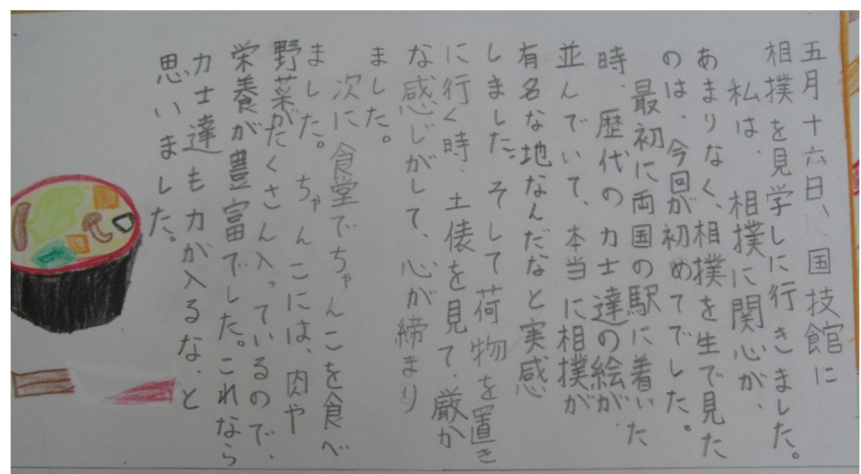 五月十六日、国技館に
相撲を見学しに行きました。
私は、相撲に関心が、
あまりなく、相撲を生で見た
のは、今回が初めてでした。
最初に両国の駅に着いた
時、歴代の力士達の絵が、
並んでいて、本当に相撲が
有名な地なんだなと実感
しました。そして荷物を置き
に行く時、土俵を見て、厳か
な感じがして、心が締まり
ました。
次に食堂でちゃんこを食べ
ました。ちゃんこには、肉や
野菜がたくさん入っているので、
栄養が豊富でした。これなら
力士達も力が入るな、と
思いました。